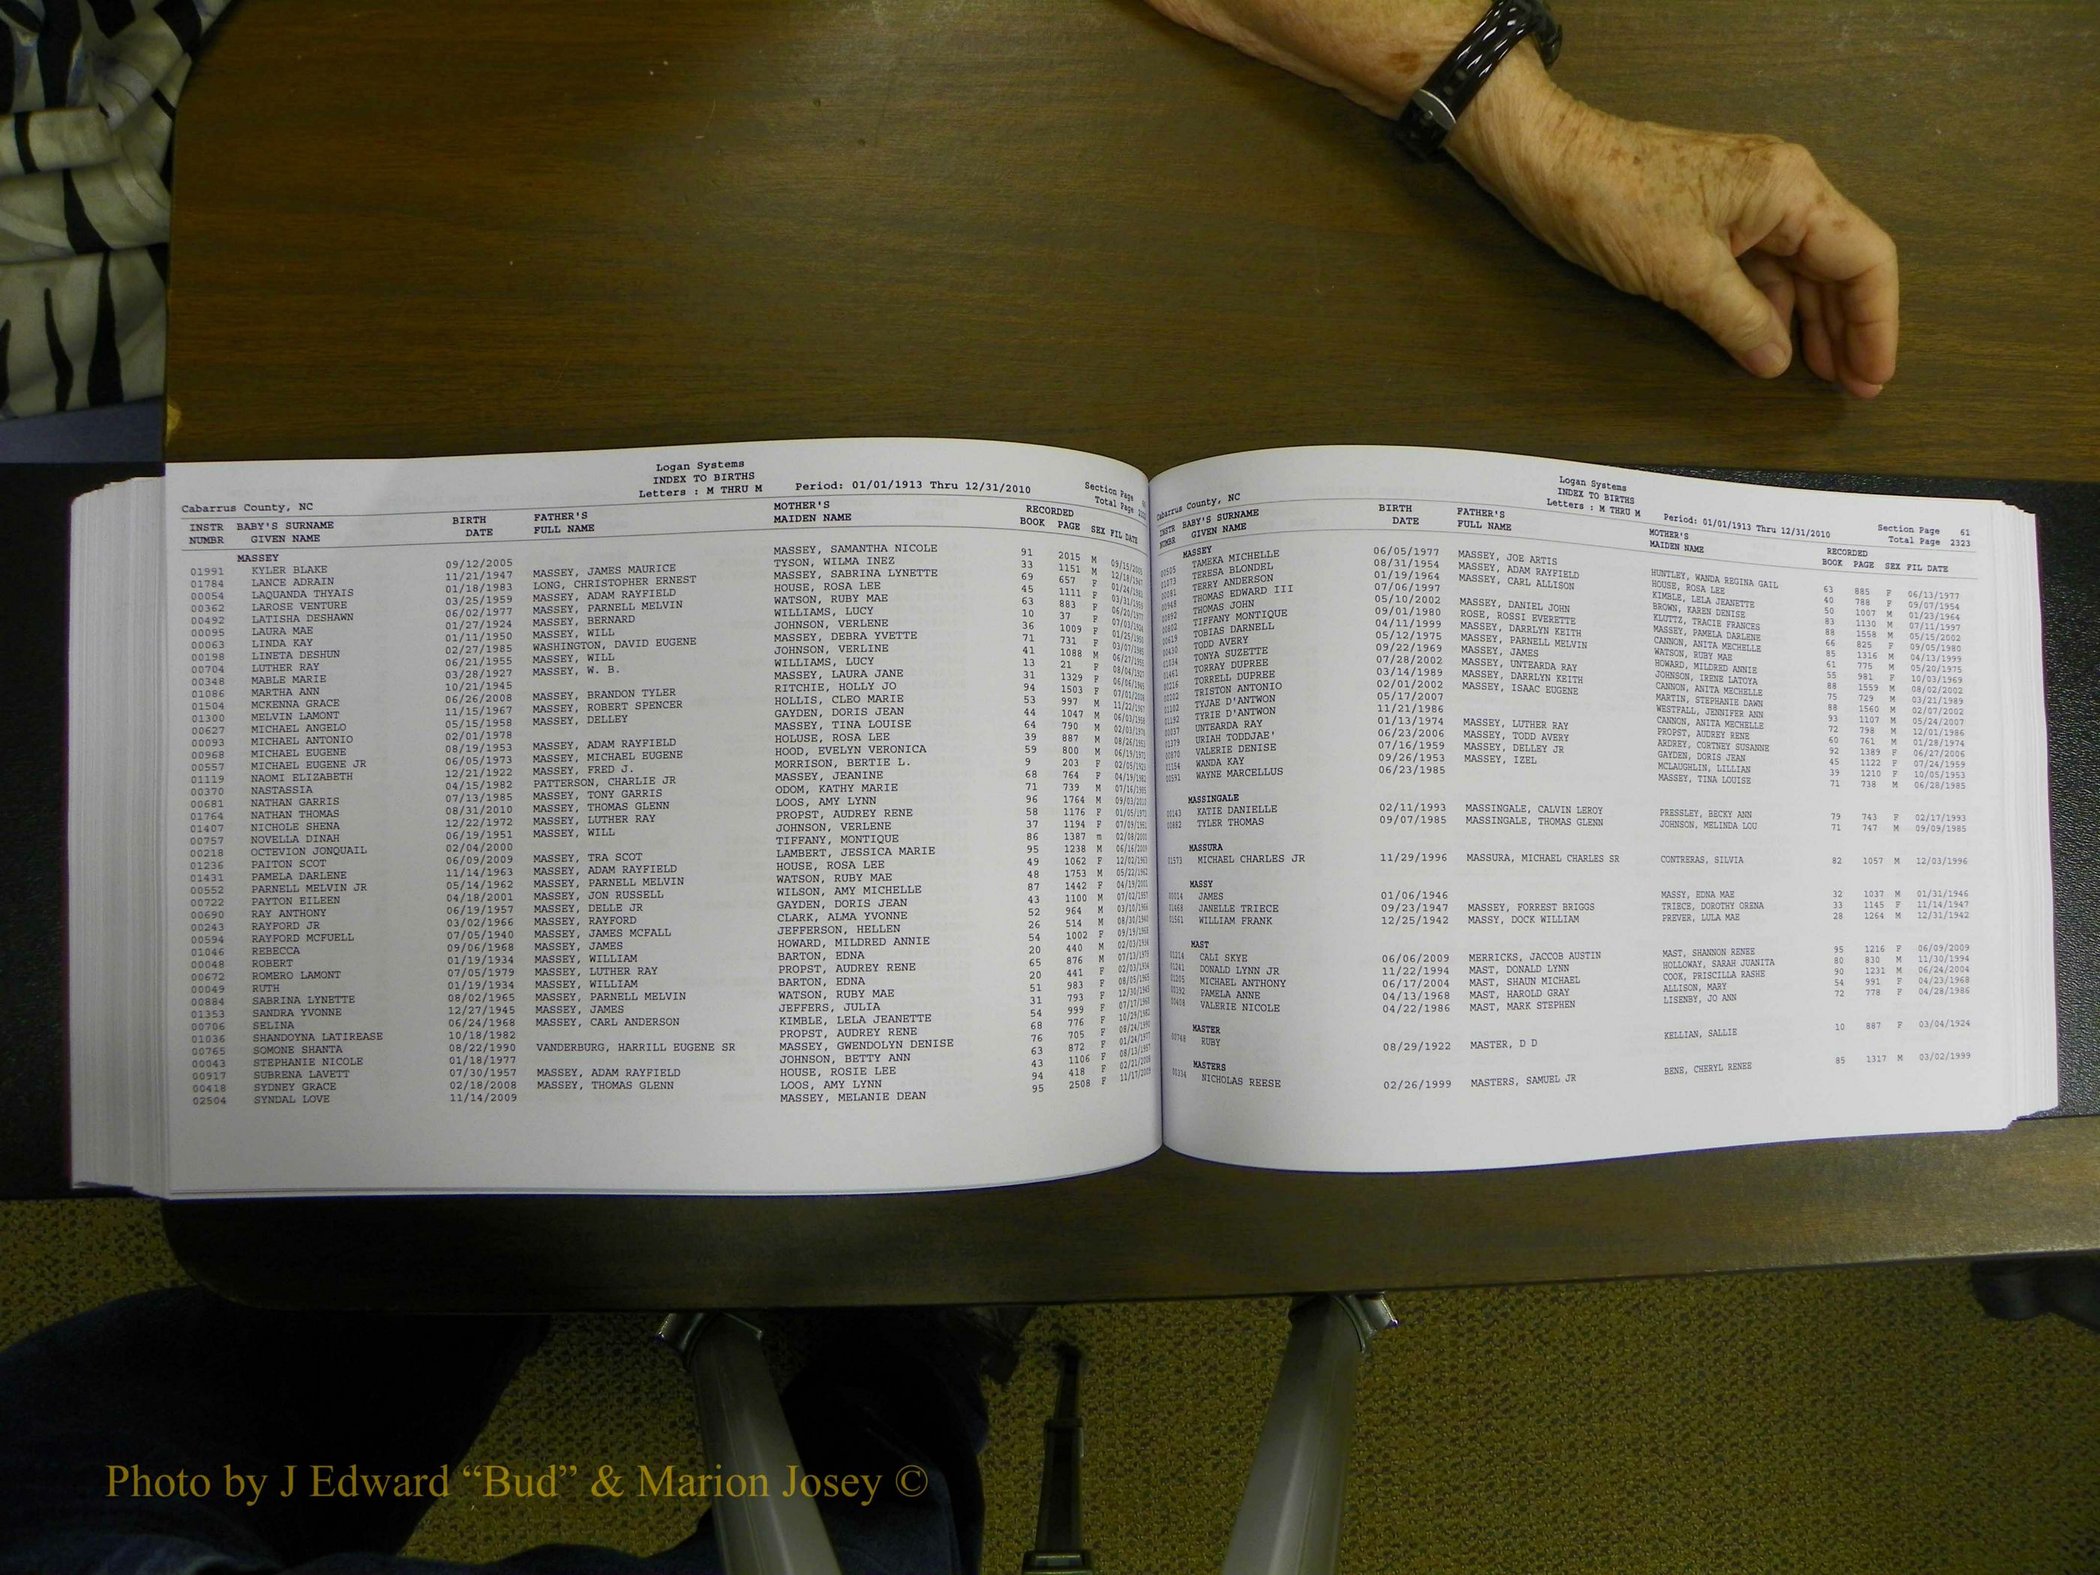 Logan Systems
INDEX TO BIRTHS
Letters : M THRU M Period: 01/01/1913 Thru 12/31/2010
Section Page
Total Page
Cabarrus County, NC
INSTR BABY'S SURNAME BIRTH FATHER'S MOTHER'S RECORDED
NUMBR GIVEN NAME DATE FULL NAME MAIDEN NAME BOOK PAGE SEX FIL DATE
MASSEY
01991 KYLER BLAKE 09/12/2005 MASSEY, SAMANTHA NICOLE 91 2015 M 09/15/2005
01784 LANCE ADRAIN 11/21/1947 MASSEY, JAMES MAURICE TYSON, WILMA INEZ 33 1151 M 12/18/1947
00054 LAQUANDA THYAIS 01/18/1983 LONG, CHRISTOPHER ERNEST MASSEY, SABRINA LYNETTE 69 657 F 01/24/1983
00362 LAROSE VENTURE 03/25/1959 MASSEY, ADAM RAYFIELD HOUSE, ROSA LEE 45 1111 F 03/31/1959
00492 LATISHA DESHAWN 06/02/1977 MASSEY, PARNELL MELVIN WATSON, RUBY MAE 63 883 F 06/20/1977
00095 LAURA MAE 01/27/1924 MASSEY, BERNARD WILLIAMS, LUCY 10 37 F 07/03/1924
00063 LINDA KAY 01/11/1950 MASSEY, WILL JOHNSON, VERLENE 36 1009 F 01/25/1950
00198 LINETA DESHUN 02/27/1985 WASHINGTON, DAVID EUGENE MASSEY, DEBRA YVETTE 71 731 F 03/07/1985
00704 LUTHER RAY 06/21/1955 MASSEY, WILL JOHNSON, VERLINE 41 1088 M 06/27/1955
00348 MABLE MARIE 03/28/1927 MASSEY, W. B. WILLIAMS, LUCY 13 21 F 08/04/1927
01086 MARTHA ANN 10/21/1945 MASSEY, LAURA JANE 31 1329 F
01504 MCKENNA GRACE 06/26/2008 MASSEY, BRANDON TYLER RITCHIE, HOLLY JO 94 1503 F 07/01/2008
01300 MELVIN LAMONT 11/15/1967 MASSEY, ROBERT SPENCER HOLLIS, CLEO MARIE 53 997 M 11/22/1967
00627 MICHAEL ANGELO 05/15/1958 MASSEY, DELLEY GAYDEN, DORIS JEAN 44 1047 M 06/03/1958
00093 MICHAEL ANTONIO 02/01/1978 MASSEY, TINA LOUISE 64 790 M 02/03/1978
00968 MICHAEL EUGENE 08/19/1953 MASSEY, ADAM RAYFIELD HOLUSE, ROSA LEE 39 887 M 08/26/1953
00557 MICHAEL EUGENE JR 06/05/1973 MASSEY, MICHAEL EUGENE HOOD, EVELYN VERONICA 59 800 M 06/19/1973
01119 NAOMI ELIZABETH 12/21/1922 MASSEY, FRED J. MORRISON, BERTIE L. 9 203 F 02/05/1923
00370 NASTASSIA 04/15/1982 PATTERSON, CHARLIE JR MASSEY, JEANINE 68 764 F 04/19/1982
00681 NATHAN GARRIS 07/13/1985 MASSEY, TONY GARRIS ODOM, KATHY MARIE 71 739 M 07/16/1985
01764 NATHAN THOMAS 08/31/2010 MASSEY, THOMAS GLENN LOOS, AMY LYNN 96 1764 M 09/03/2010
01407 NICHOLE SHENA 12/22/1972 MASSEY, LUTHER RAY PROPST, AUDREY RENE 58 1176 F 01/05/1973
00757 NOVELLA DINAH 06/19/1951 MASSEY, WILL JOHNSON, VERLENE 37 1194 F 07/09/1951
00218 OCTEVION JONQUAIL 02/04/2000 TIFFANY, MONTIQUE 86 1387 m 02/08/2000
01236 PAITON SCOT 06/09/2009 MASSEY, TRA SCOT LAMBERT, JESSICA MARIE 95 1238 M 06/16/2009
01431 PAMELA DARLENE 11/14/1963 MASSEY, ADAM RAYFIELD HOUSE, ROSA LEE 49 1062 F 12/02/1963
00552 PARNELL MELVIN JR 05/14/1962 MASSEY, PARNELL MELVIN WATSON, RUBY MAE 48 1753 M 05/22/1962
00722 PAYTON EILEEN 04/18/2001 MASSEY, JON RUSSELL WILSON, AMY MICHELLE 87 1442 F 04/19/2001
00690 RAY ANTHONY 06/19/1957 MASSEY, DELLE JR GAYDEN, DORIS JEAN 43 1100 M 07/02/1957
00243 RAYFORD JR 03/02/1966 MASSEY, RAYFORD CLARK, ALMA YVONNE 52 964 M 03/10/1966
00594 RAYFORD MCFUELL 07/05/1940 MASSEY, JAMES MCFALL JEFFERSON, HELLEN 26 514 M 08/30/1940
01046 REBECCA 09/06/1968 MASSEY, JAMES HOWARD, MILDRED ANNIE 54 1002 F 09/19/1968
00048 ROBERT 01/19/1934 MASSEY, WILLIAM BARTON, EDNA 20 440 M 02/03/1934
00672 ROMERO LAMONT 07/05/1979 MASSEY, LUTHER RAY PROPST, AUDREY RENE 65 876 M 07/13/1979
00049 RUTH 01/19/1934 MASSEY, WILLIAM BARTON, EDNA 20 441 F 02/03/1934
00884 SABRINA LYNETTE 08/02/1965 MASSEY, PARNELL MELVIN WATSON, RUBY MAE 51 983 F 08/05/1965
01353 SANDRA YVONNE 12/27/1945 MASSEY, JAMES JEFFERS, JULIA 31 793 F 12/30/1945
00706 SELINA 06/24/1968 MASSEY, CARL ANDERSON KIMBLE, LELA JEANETTE 54 999 F 07/17/1968
01036 SHANDOYNA LATIREASE 10/18/1982 PROPST, AUDREY RENE 68 776 F 10/29/1982
00765 SOMONE SHANTA 08/22/1990 VANDERBURG, HARRILL EUGENE SR MASSEY, GWENDOLYN DENISE 76 705 F 08/24/1990
00043 STEPHANIE NICOLE 01/18/1977 JOHNSON, BETTY ANN 63 872 F 01/24/1977
00917 SUBRENA LAVETT 07/30/1957 MASSEY, ADAM RAYFIELD HOUSE, ROSIE LEE 43 1106 F 08/13/1957
00418 SYDNEY GRACE 02/18/2008 MASSEY, THOMAS GLENN LOOS, AMY LYNN 94 418 F 02/21/2008
02504 SYNDAL LOVE 11/14/2009 MASSEY, MELANIE DEAN 95 2508 F 11/17/2009
Logan Systems
INDEX TO BIRTHS
Letters : M THRU M Period: 01/01/1913 Thru 12/31/2010
Section Page 61
Total Page 2323
Cabarrus County, NC
INSTR BABY'S SURNAME BIRTH FATHER'S MOTHER'S RECORDED
NUMBR GIVEN NAME DATE FULL NAME MAIDEN NAME BOOK PAGE SEX FIL DATE
MASSEY
00505 TAMEKA MICHELLE 06/05/1977 MASSEY, JOE ARTIS HUNTLEY, WANDA REGINA GAIL 63 885 F 06/13/1977
01073 TERESA BLONDEL 08/31/1954 MASSEY, ADAM RAYFIELD HOUSE, ROSA LEE 40 788 F 09/07/1954
00081 TERRY ANDERSON 01/19/1964 MASSEY, CARL ALLISON KIMBLE, LELA JEANETTE 50 1007 M 01/23/1964
00948 THOMAS EDWARD III 07/06/1997 BROWN, KAREN DENISE 83 1130 M 07/11/1997
00892 THOMAS JOHN 05/10/2002 MASSEY, DANIEL JOHN KLUTTZ, TRACIE FRANCES 88 1558 M 05/15/2002
00802 TIFFANY MONTIQUE 09/01/1980 ROSE, ROSSI EVERETTE MASSEY, PAMELA DARLENE 66 825 F 09/05/1980
00619 TOBIAS DARNELL 04/11/1999 MASSEY, DARRLYN KEITH CANNON, ANITA MECHELLE 85 1316 M 04/13/1999
00430 TODD AVERY 05/12/1975 MASSEY, PARNELL MELVIN WATSON, RUBY MAE 61 775 M 05/20/1975
01034 TONYA SUZETTE 09/22/1969 MASSEY, JAMES HOWARD, MILDRED ANNIE 55 981 F 10/03/1969
01461 TORRAY DUPREE 07/28/2002 MASSEY, UNTEARDA RAY JOHNSON, IRENE LATOYA 88 1559 M 08/02/2002
00216 TORRELL DUPREE 03/14/1989 MASSEY, DARRLYN KEITH CANNON, ANITA MECHELLE 75 729 M 03/21/1989
00202 TRISTON ANTONIO 02/01/2002 MASSEY, ISAAC EUGENE MARTIN, STEPHANIE DAWN 88 1560 M 02/07/2002
01102 TYJAE D'ANTWON 05/17/2007 WESTFALL, JENNIFER ANN 93 1107 M 05/24/2007
01192 TYRIE D'ANTWON 11/21/1986 CANNON, ANITA MECHELLE 72 798 M 12/01/1986
00037 UNTEARDA RAY 01/13/1974 MASSEY, LUTHER RAY PROPST, AUDREY RENE 60 761 M 01/28/1974
01379 URIAH TODDJAE' 06/23/2006 MASSEY, TODD AVERY ARDREY, CORTNEY SUSANNE 92 1389 F 06/27/2006
00870 VALERIE DENISE 07/16/1959 MASSEY, DELLEY JR GAYDEN, DORIS JEAN 45 1122 F 07/24/1959
01154 WANDA KAY 09/26/1953 MASSEY, IZEL MCLAUGHLIN, LILLIAN 39 1210 F 10/05/1953
00591 WAYNE MARCELLUS 06/23/1985 MASSEY, TINA LOUISE 71 738 M 06/28/1985
MASSINGALE
00143 KATIE DANIELLE 02/11/1993 MASSINGALE, CALVIN LEROY PRESSLEY, BECKY ANN 79 743 F 02/17/1993
00882 TYLER THOMAS 09/07/1985 MASSINGALE, THOMAS GLENN JOHNSON, MELINDA LOU 71 747 M 09/09/1985
MASSURA
01573 MICHAEL CHARLES JR 11/29/1996 MASSURA, MICHAEL CHARLES SR CONTRERAS, SILVIA 82 1057 M 12/03/1996
MASSY
00014 JAMES 01/06/1946 MASSY, EDNA MAE 32 1037 M 01/31/1946
01468 JANELLE TRIECE 09/23/1947 MASSEY, FORREST BRIGGS TRIECE, DOROTHY ORENA 33 1145 F 11/14/1947
01561 WILLIAM FRANK 12/25/1942 MASSY, DOCK WILLIAM PREVER, LULA MAE 28 1264 M 12/31/1942
MAST
01214 CALI SKYE 06/06/2009 MERRICKS, JACCOB AUSTIN MAST, SHANNON RENEE 95 1216 F 06/09/2009
01241 DONALD LYNN JR 11/22/1994 MAST, DONALD LYNN HOLLOWAY, SARAH JUANITA 80 830 M 11/30/1994
01205 MICHAEL ANTHONY 06/17/2004 MAST, SHAUN MICHAEL COOK, PRISCILLA RASHE 90 1231 M 06/24/2004
00392 PAMELA ANNE 04/13/1968 MAST, HAROLD GRAY ALLISON, MARY 54 991 F 04/23/1968
00408 VALERIE NICOLE 04/22/1986 MAST, MARK STEPHEN LISENBY, JO ANN 72 778 F 04/28/1986
MASTER
00748 RUBY 08/29/1922 MASTER, D D KELLIAN, SALLIE 10 887 F 03/04/1924
MASTERS
00334 NICHOLAS REESE 02/26/1999 MASTERS, SAMUEL JR BENE, CHERYL RENEE 85 1317 M 03/02/1999
Photo by J Edward “Bud” & Marion Josey ©